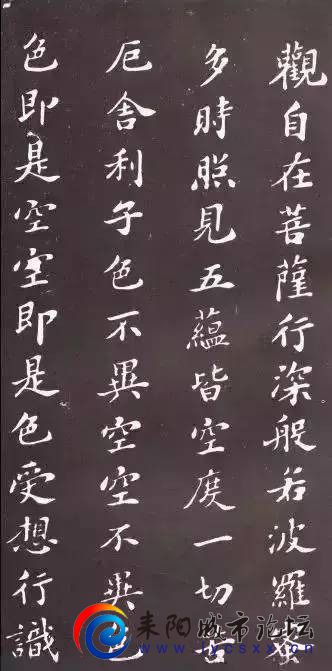 觀自在菩薩行深般若波羅蜜
多時照見五蘊皆空度一切苦
厄舍利子色不異空空不異色
色即是空空即是色受想行識
耒阳城市论坛